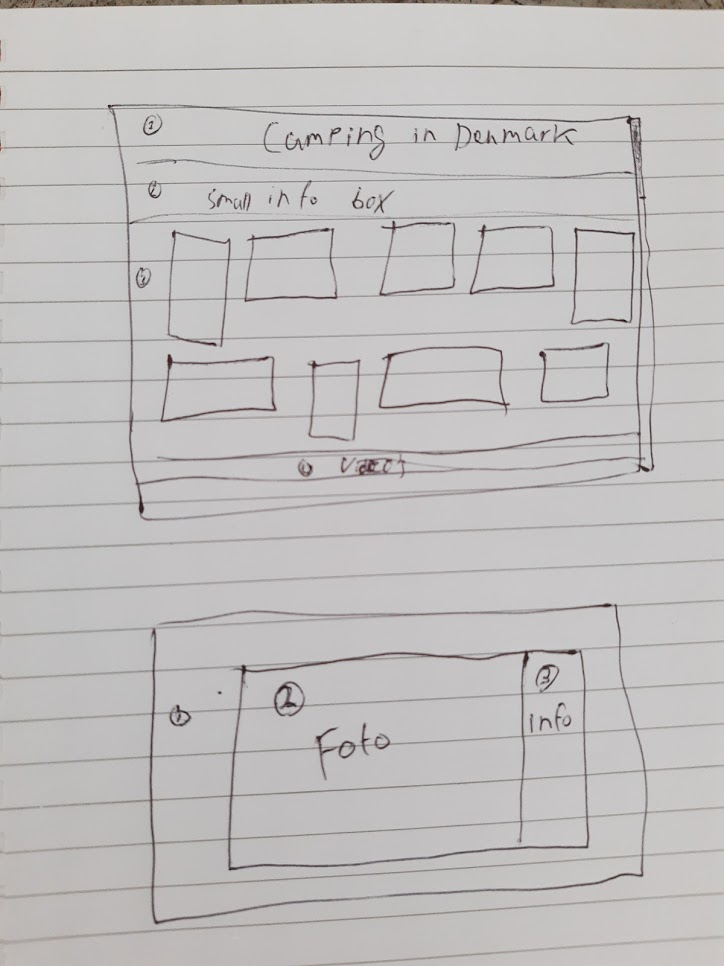 ① Camping in Denmark
② small info box
③
④
①
② Foto
③ info